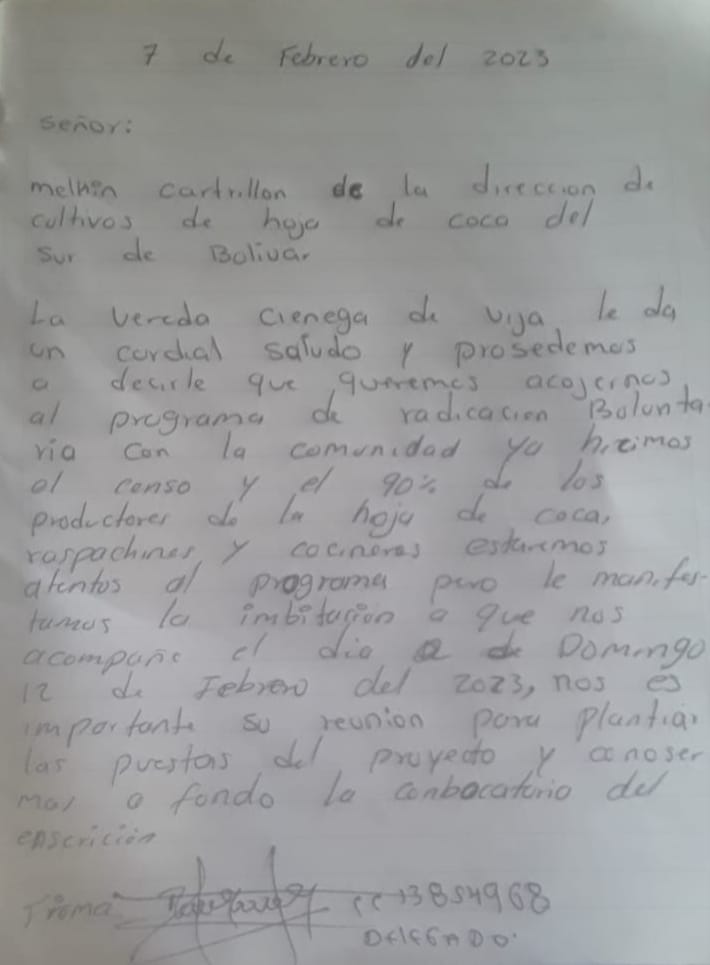 7 de Febrero del 2023
señor:
melhin cartrillon de la direccion de
cultivos de hoja de coca del
sur de Bolivar
La vereda cienega de vija le da
un cordial saludo y prosedemos
a decirle que queremos acojernos
al programa de radicacion Bolunta
ria con la comunidad ya hizimos
el censo y el 90% de los
productores de la hoja de coca,
raspachines y cocineros estaremos
atentos al programa pero le manifes-
tamos la imbitacion a que nos
acompañe el dia de Domingo
12 de Febrero del 2023, nos es
importante su reunion para plantiar
las puestas del proyecto y conoser
mas a fondo la conbocatorio del
enscrición
Firma cc 13854968
DELEGADO.